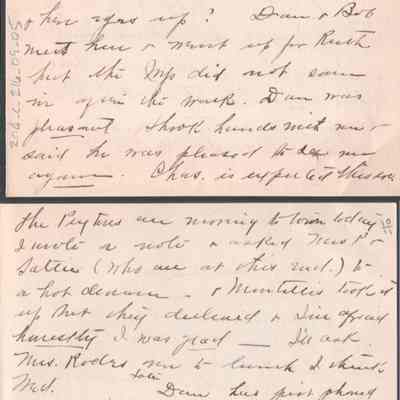 & her eyes up? Dan & Bob
meet her & went up for Ruth
but the Mrs did not come
in after the work. Dan was
pleasant shook hands with me &
said he was pleased to see me
again. Chas. is expected this
the Peytons are moving to town today
I wrote a note & asked Mrs P &
Sallie (who are at this end.) to
a hot dinner & took it
up but they declined & I'm afraid
honestly I was glad — I'll ask
Mrs. Rodes over to lunch I think
Wed. Dan has just phoned